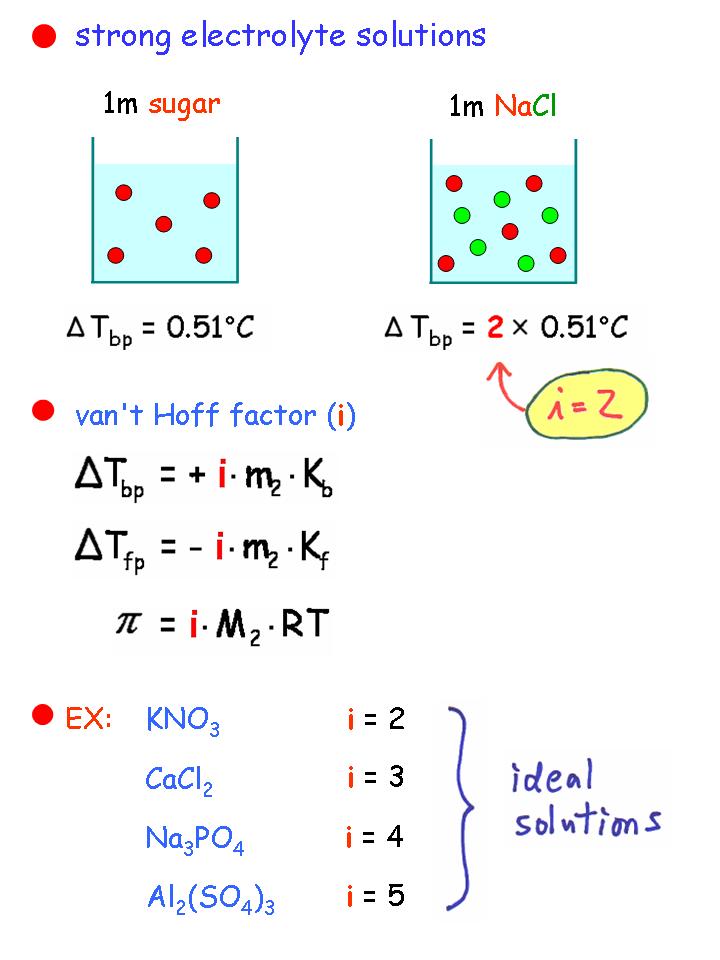 strong electrolyte solutions
1m sugar
1m NaCl
Δ T_bp = 0.51°C
Δ T_bp = 2 × 0.51°C
i = 2
van't Hoff factor (i)
ΔT_bp = + i · m₂ · K_b
ΔT_fp = - i · m₂ · K_f
π = i · M₂ · RT
EX: KNO₃ i = 2
CaCl₂ i = 3
Na₃PO₄ i = 4
Al₂(SO₄)₃ i = 5
ideal
solutions